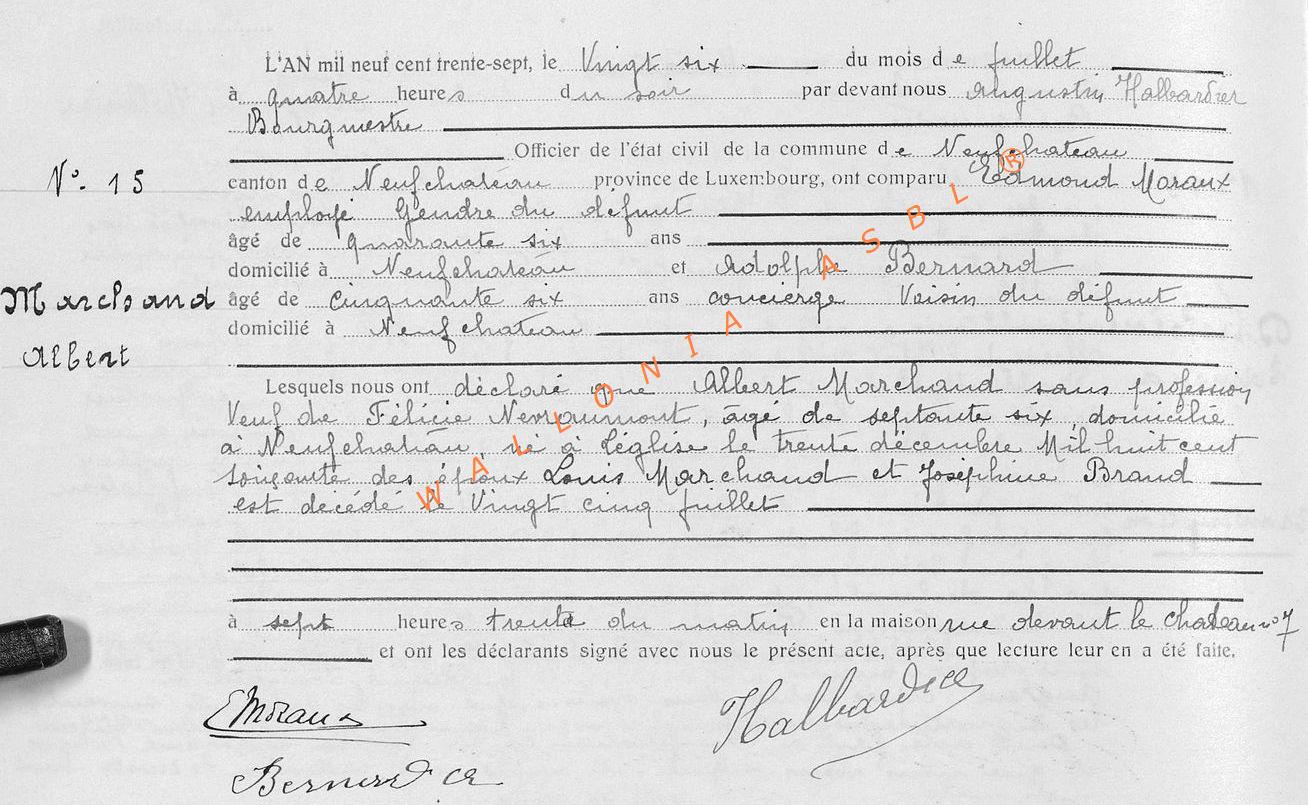 L'AN mil neuf cent trente-sept, le Vingt six du mois de juillet
à quatre heures du soir par devant nous Augustin Halbardier
Bourgmestre
Officier de l'état civil de la commune de Neufchateau
N°. 15
canton de Neufchateau province de Luxembourg, ont comparu Edmond Moraux
employé Gendre du défunt
âgé de quarante six ans
domicilié à Neufchateau et Adolphe Bernard
Marchand
âgé de cinquante six ans concierge Voisin du défunt
domicilié à Neufchateau
Albert
Lesquels nous ont déclaré que Albert Marchand sans profession
Veuf de Félicie Nevraumont, âgé de septante six, domicilié
à Neufchateau, né à Léglise le trente décembre Mil huit cent
soixante des époux Louis Marchand et Joséphine Braud
est décédé le Vingt cinq juillet
à sept heures trente du matin en la maison rue devant le chateau n° 7
et ont les déclarants signé avec nous le présent acte, après que lecture leur en a été faite.
EMoraux
Halbardier
Bernard
WALLONIA ASBL ®